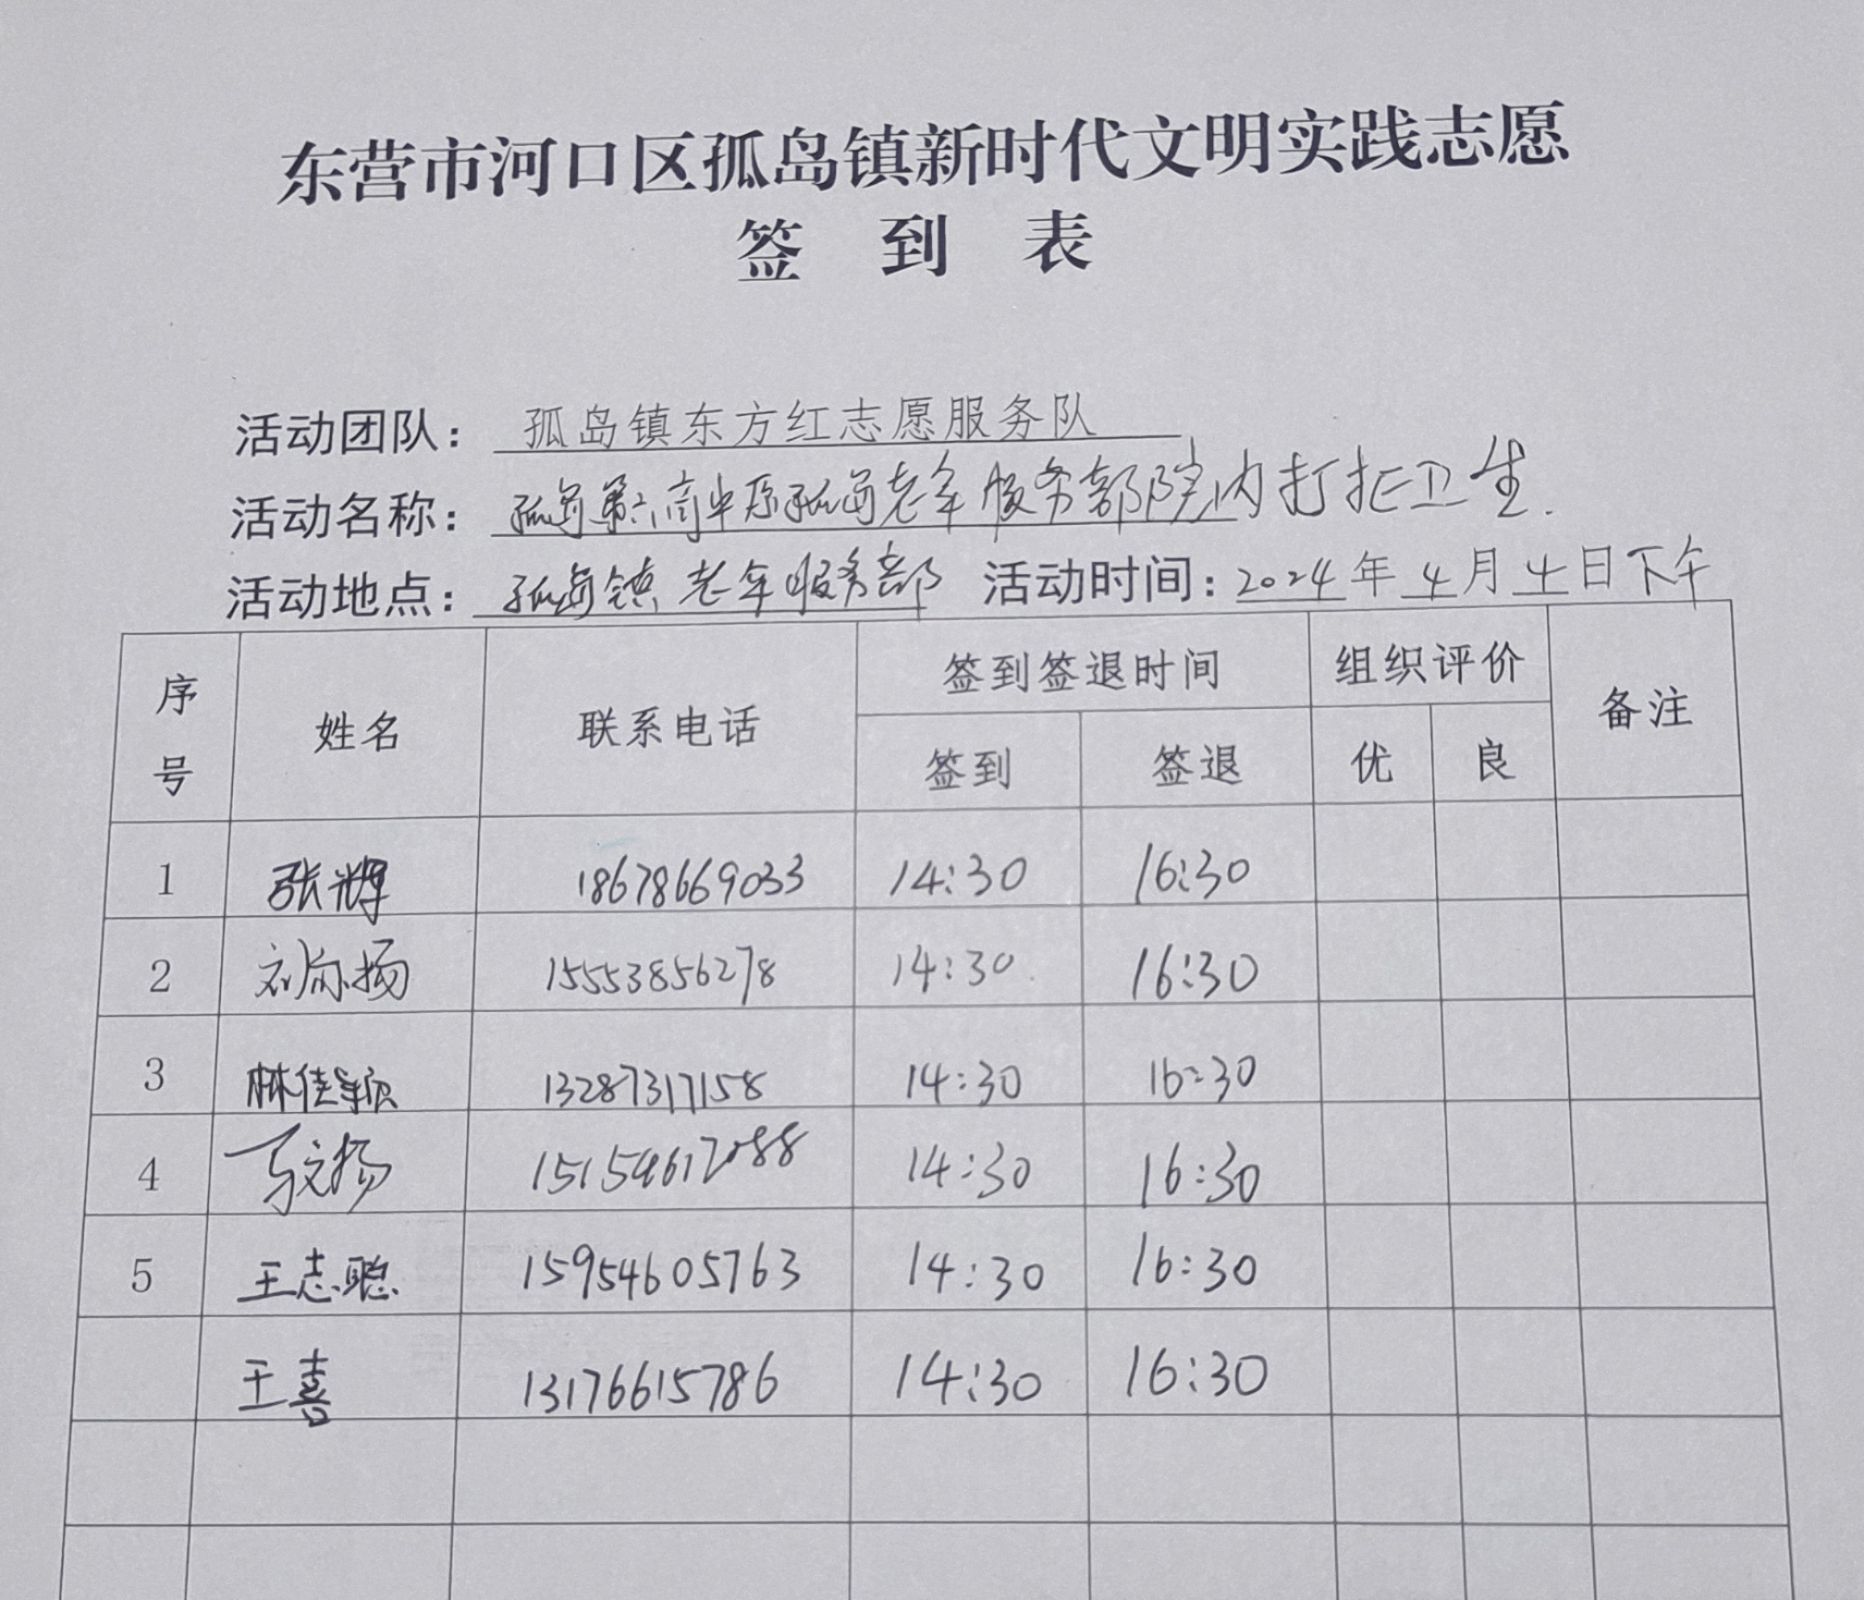 东营市河口区孤岛镇新时代文明实践志愿
签 到 表
活动团队：孤岛镇东方红志愿服务队
活动名称：孤岛第六高中原孤岛老年服务部院内打扫卫生.
活动地点：孤岛镇老年服务部 活动时间：2024年4月4日下午
序号 姓名 联系电话 签到签退时间 组织评价 备注
签到 签退 优 良
1 张辉 18678669033 14:30 16:30
2 刘 扬 15553856278 14:30 16:30
3 林佳颖 13287317158 14:30 16:30
4 马文扬 15154612088 14:30 16:30
5 王志聪 15954605763 14:30 16:30
王喜 13176615786 14:30 16:30